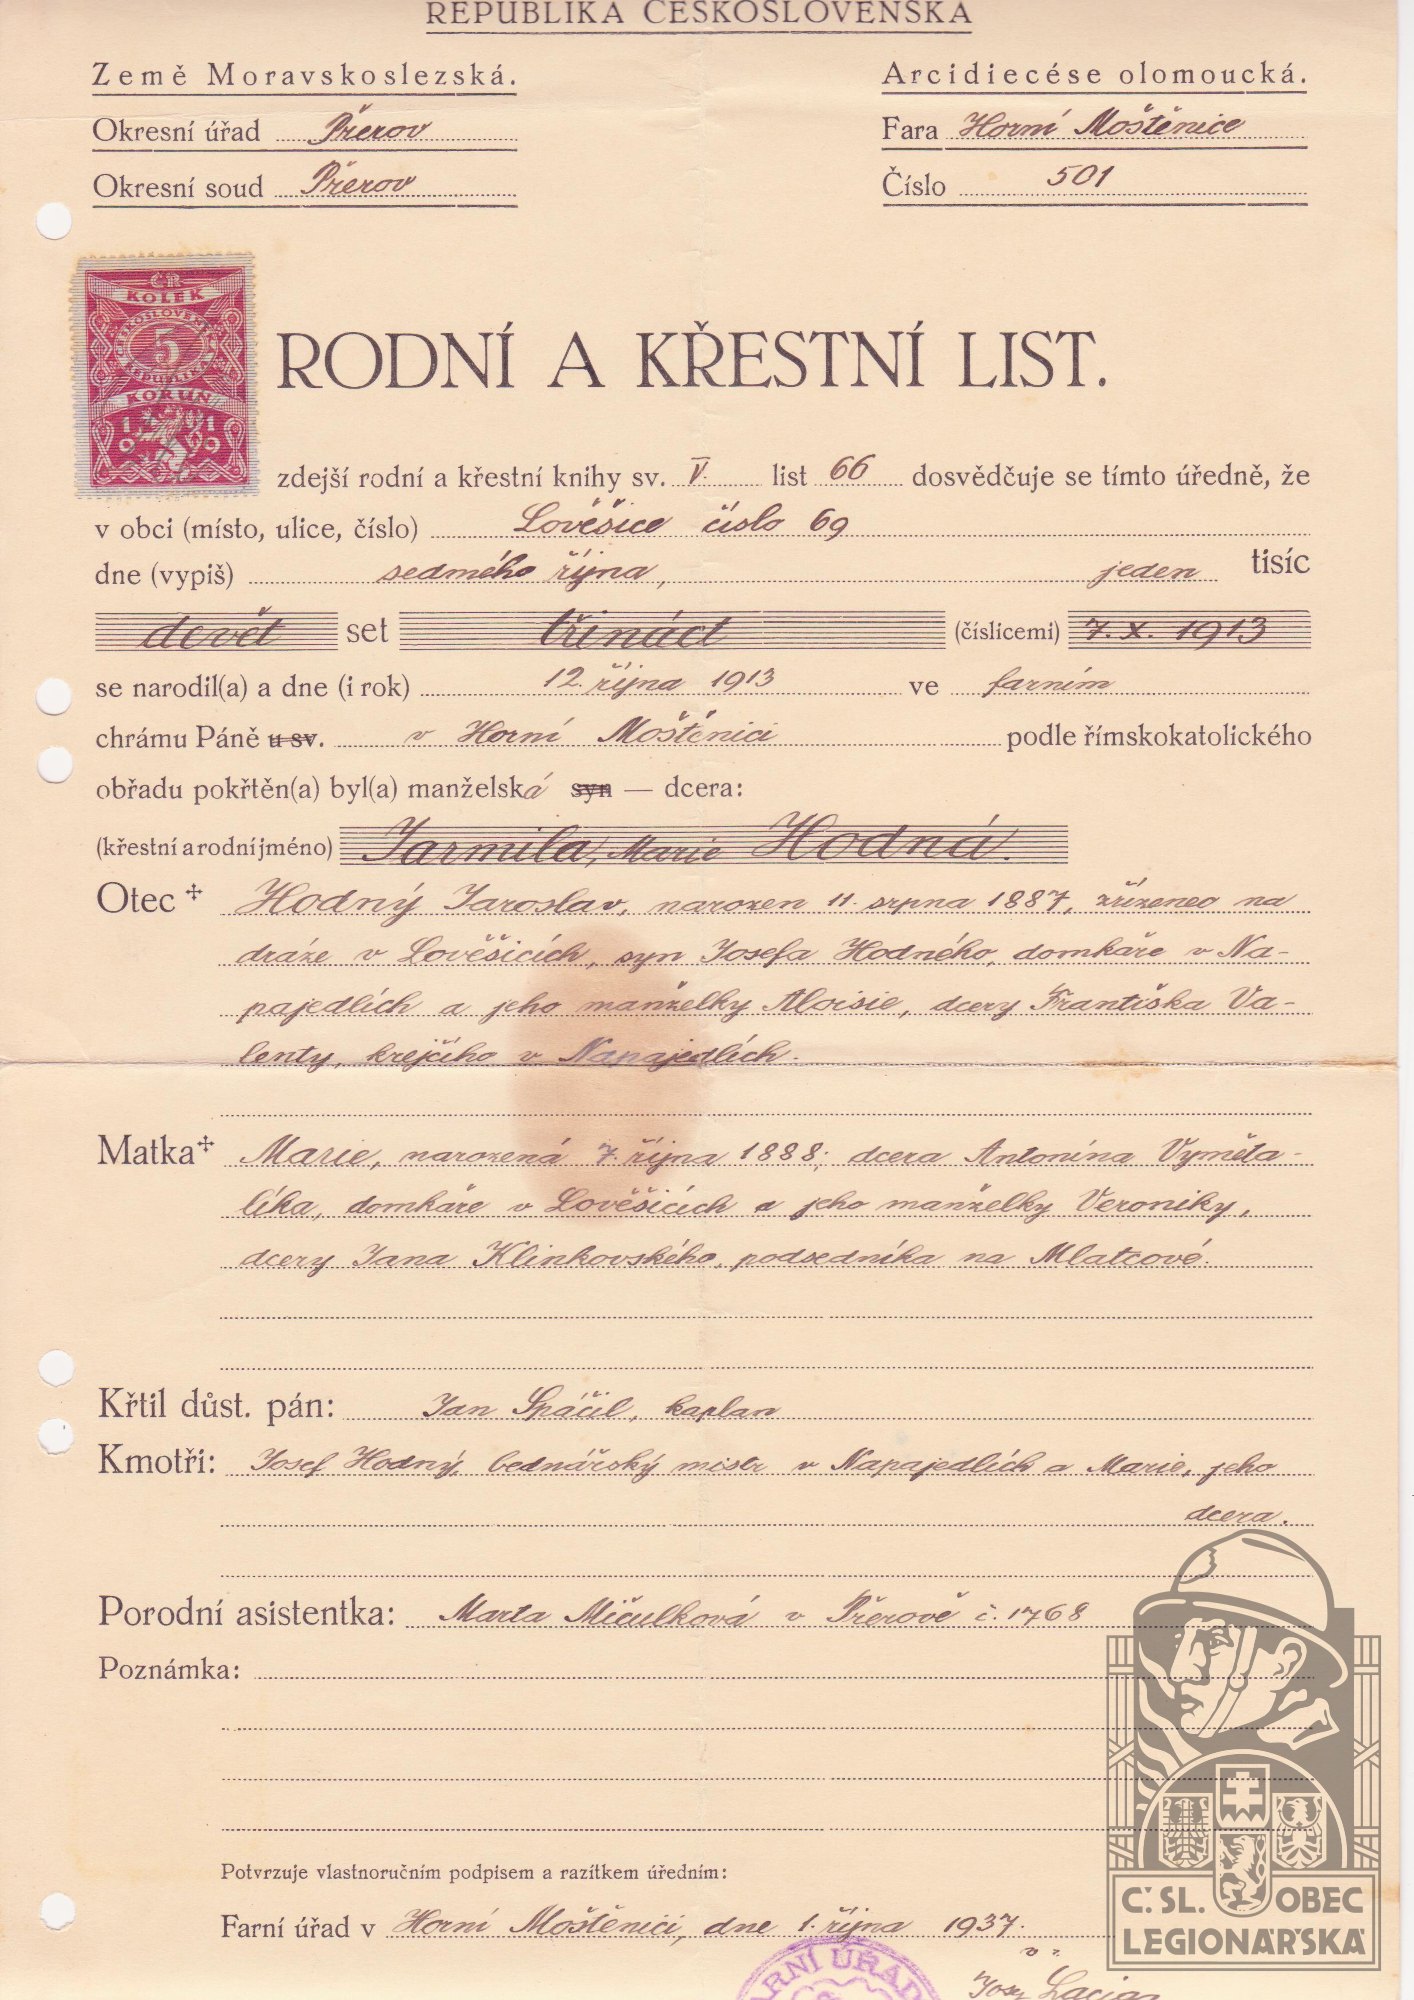 REPUBLIKA ČESKOSLOVENSKÁ
Země Moravskoslezská.
Arcidiecése olomoucká.
Okresní úřad Přerov
Fara Horní Moštěnice
Okresní soud Přerov
Číslo 501
ČR
KOLEK
ČESKOSLOVENSKÁ
5
REPUBLIKA
KORUN
1919
RODNÍ A KŘESTNÍ LIST.
zdejší rodní a křestní knihy sv. V. list 66 dosvědčuje se tímto úředně, že
v obci (místo, ulice, číslo) Lověšice číslo 69
dne (vypiš) sedmého října, jeden tisíc
devět set třináct (číslicemi) 7. X. 1913
se narodil(a) a dne (i rok) 12. října 1913 ve farním
chrámu Páně u sv. v Horní Moštěnici podle římskokatolického
obřadu pokřtěn(a) byl(a) manželská syn — dcera:
(křestní a rodní jméno) Jarmila, Marie Hodná.
Otec + Hodný Jaroslav, narozen 11. srpna 1887, zřízenec na
dráze v Lověšicích, syn Josefa Hodného, domkáře v Na-
pajedlích a jeho manželky Aloisie, dcery Františka Va-
lenty, krejčího v Napajedlích.
Matka + Marie, narozená 7. října 1888; dcera Antonína Vyměta-
líka, domkáře v Lověšicích a jeho manželky Veroniky,
dcery Jana Klinkovského, podsedníka na Mlatcově.
Křtil důst. pán: Jan Spáčil, kaplan
Kmotři: Josef Hodný, bednářský mistr v Napajedlích a Marie, jeho
dcera.
Porodní asistentka: Marta Mičulková v Přerově č. 1768
Poznámka:
Potvrzuje vlastnoručním podpisem a razítkem úředním:
Farní úřad v Horní Moštěnici, dne 1. října 1937.
FARNÍ ÚŘAD
Č. SL. OBEC
LEGIONÁŘSKÁ